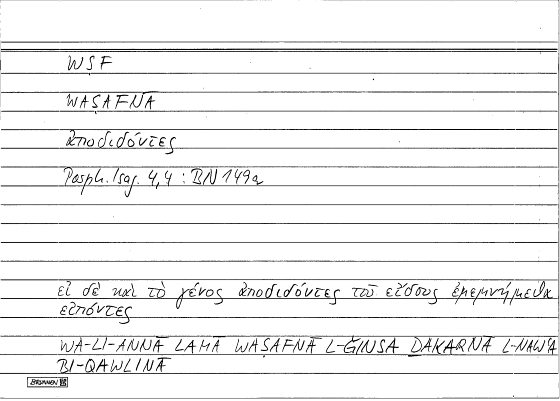 WṢF
WAṢAFNĀ
ἀποδιδόντες
Porph. Isag. 4,4 : BN 149a
εἰ δὲ καὶ τὸ γένος ἀποδιδόντες τοῦ εἴδους ἐμεμνήμεθα
εἰπόντες
WA-LI-ANNĀ LAMĀ WAṢAFNĀ L-ǦINSA ḎAKARNĀ L-NAWʿA
BI-QAWLINĀ
BRUNNEN